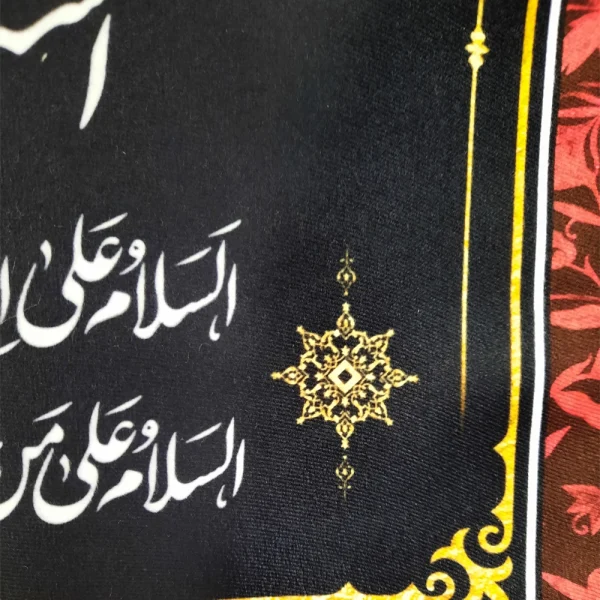 اَلسَلامُ عَلیٰ
السَلامُ عَلیٰ مَن